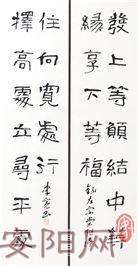 發上等願結中等
緣享下等福
錄左宗棠
擇高處立尋平處
住向寬處行
安阳网